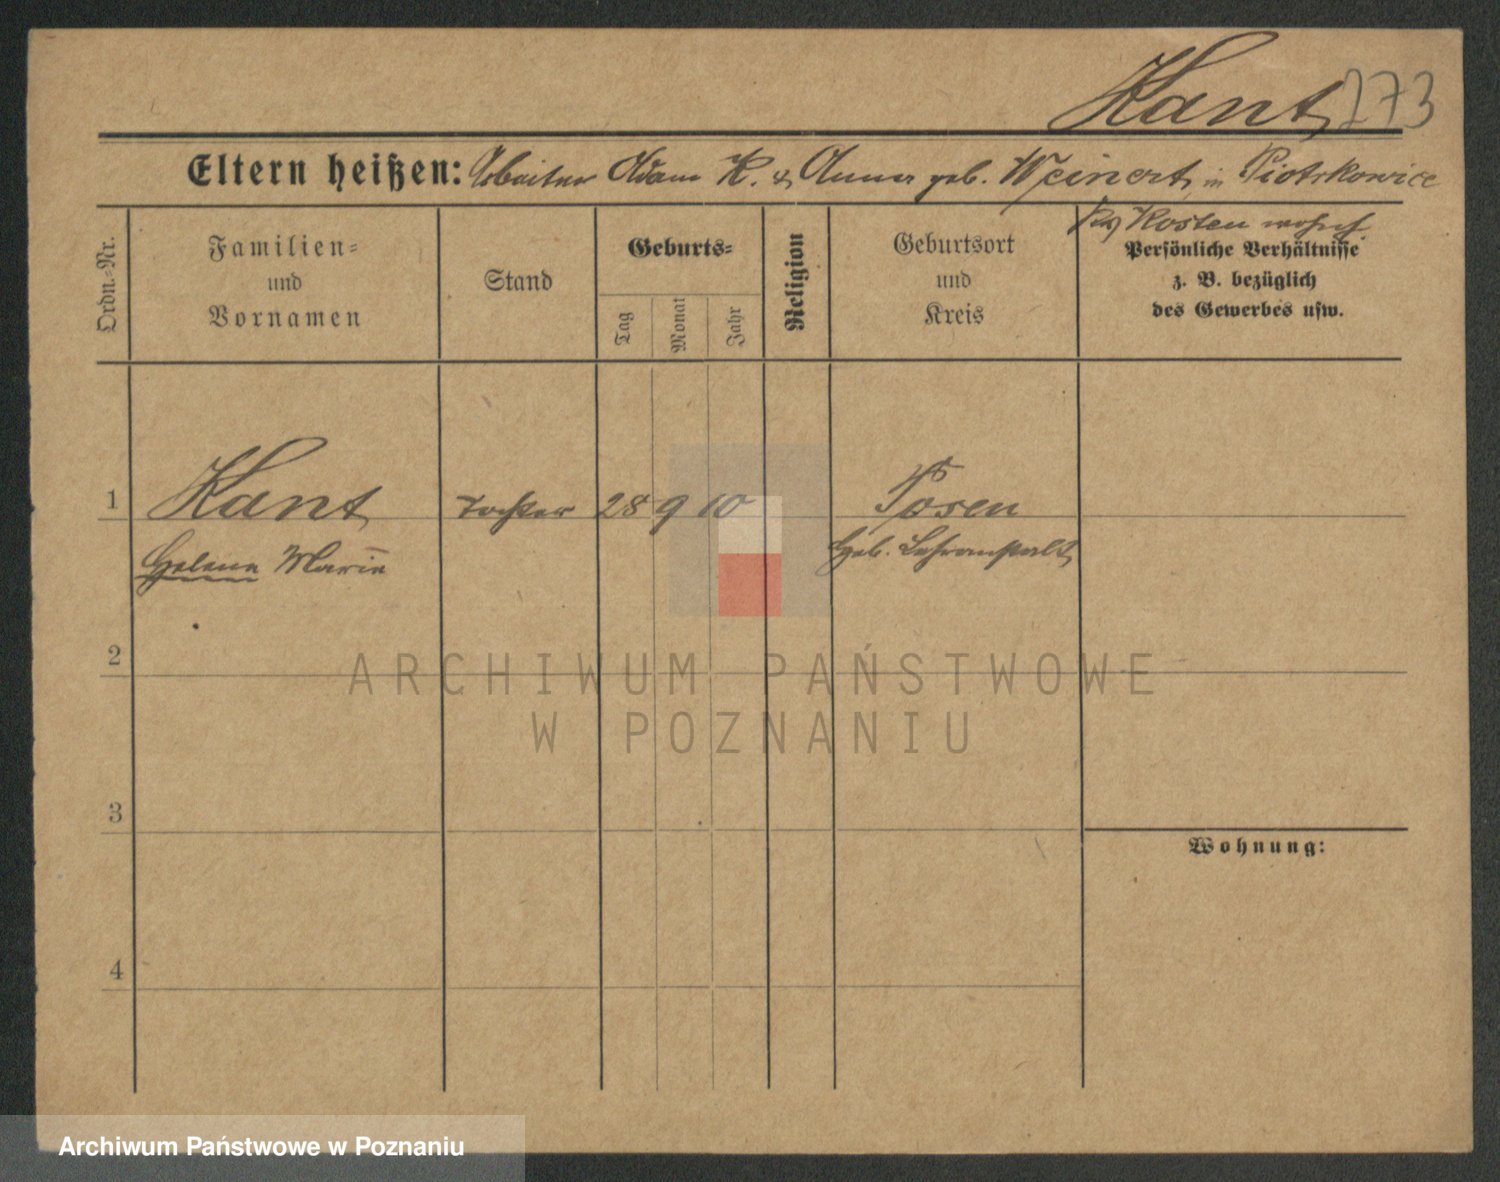 Kant 273
Eltern heißen: Arbeiter Adam K. & Anna geb. Weinert, in Piotrkowice
Krs Kosten wohnh.
Ordn.-Nr.
Familien-
und
Vornamen
Stand
Geburts-
Tag
Monat
Jahr
Religion
Geburtsort
und
Kreis
Persönliche Verhältnisse
z. B. bezüglich
des Gewerbes usw.
1 Kant Tochter 28 9 10 Posen
Helene Marie Heb. Lehranstalt
2
3
Wohnung:
4
ARCHIWUM PAŃSTWOWE
W POZNANIU
Archiwum Państwowe w Poznaniu